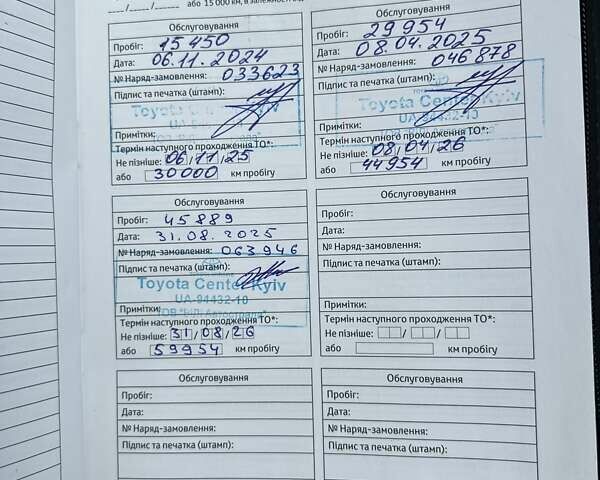 або 15 000 км, в залежності від
Обслуговування
Пробіг: 15 450
Дата: 06.11.2024
№ Наряд-замовлення: 033623
Підпис та печатка (штамп):
Toyota Center Kyiv
Примітки:
Термін наступного проходження ТО*:
Не пізніше: 06/11/25
або 30000 км пробігу
Обслуговування
Пробіг: 29 954
Дата: 08.04.2025
№ Наряд-замовлення: 046878
Підпис та печатка (штамп):
Toyota Center Kyiv
UA-94432-10
Примітки:
Термін наступного проходження ТО*:
Не пізніше: 08/04/26
або 44954 км пробігу
Обслуговування
Пробіг: 45889
Дата: 31.08.2025
№ Наряд-замовлення: 063946
Підпис та печатка (штамп):
Toyota Center Kyiv
UA-94432-10
Примітки:
Термін наступного проходження ТО*:
Не пізніше: 31/08/26
або 59954 км пробігу
Обслуговування
Пробіг:
Дата:
№ Наряд-замовлення:
Підпис та печатка (штамп):
Примітки:
Термін наступного проходження ТО*:
Не пізніше: / /
або км пробігу
Обслуговування
Пробіг:
Дата:
№ Наряд-замовлення:
Підпис та печатка (штамп):
Обслуговування
Пробіг:
Дата:
№ Наряд-замовлення:
Підпис та печатка (штамп):